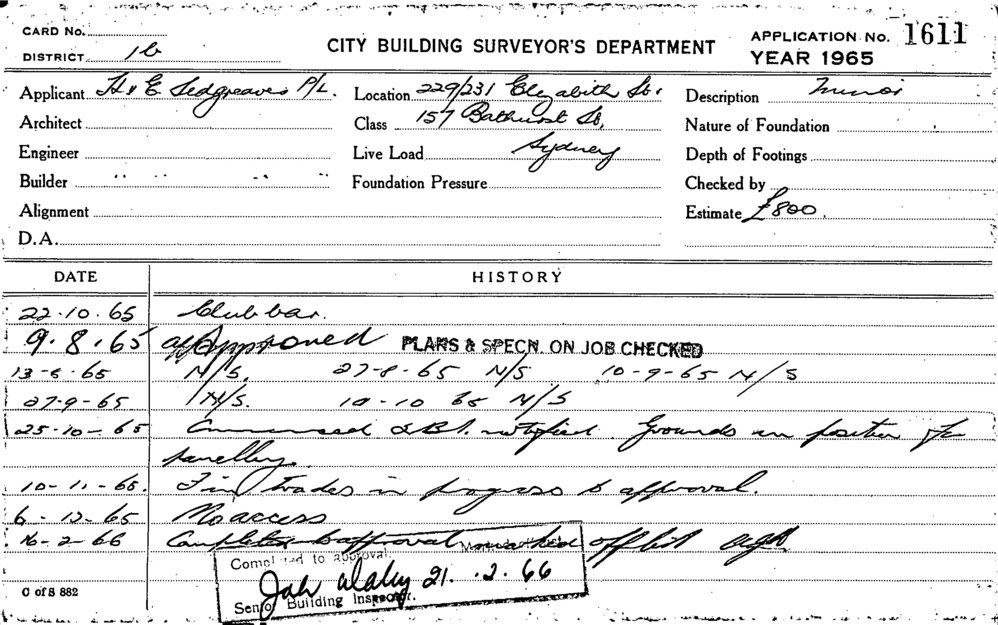 CARD No.
CITY BUILDING SURVEYOR'S DEPARTMENT
APPLICATION No. 1611
DISTRICT 1b
YEAR 1965
Applicant H & E Sedgreaves P/L. Location 229/231 Elizabeth St. Description Minor
Architect Class 157 Bathurst St, Nature of Foundation
Engineer Live Load Sydney Depth of Footings
Builder " " " " Foundation Pressure Checked by
Alignment Estimate £800.
D.A.
DATE HISTORY
22.10.65 Club bar.
9.8.65 Approved PLANS & SPECN. ON JOB CHECKED
13-8-65 N/S. 27-8-65 N/S 10-9-65 N/S
27-9-65 N/S. 10-10 65 N/S
25-10-65 Commenced & B.I. notified. Grounds in position for
panelling.
10-11-65. Final trades in progress to approval.
6-12-65 No access
16-2-66 Completed to approval marked off list
Completed to approval.
21. 2. 66
Senior Building Inspector.
C of S 882